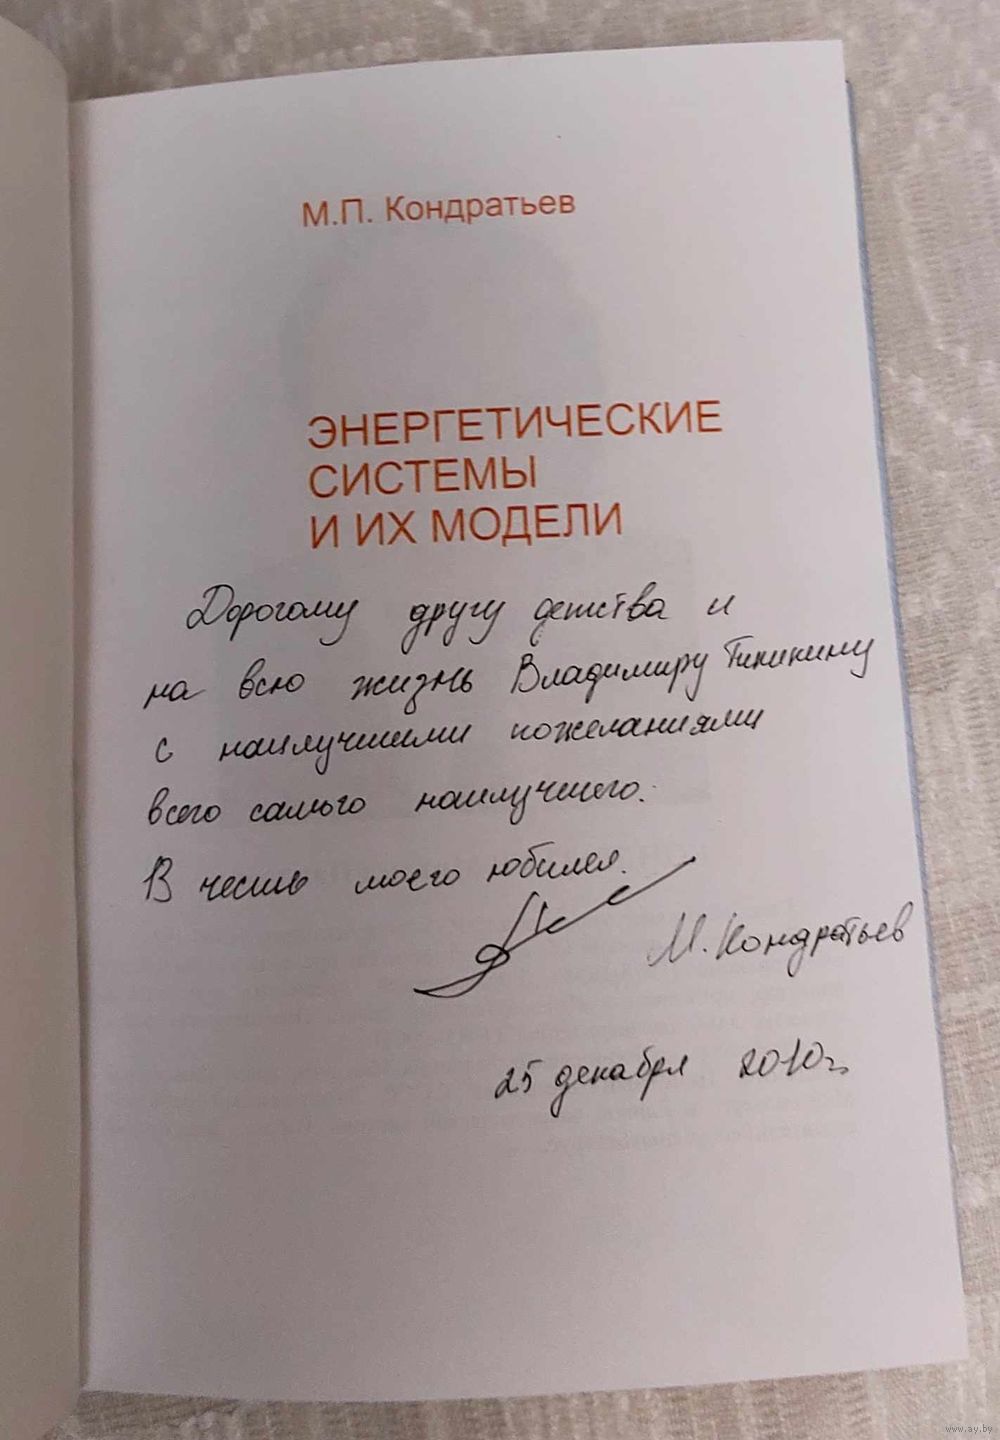 М.П. Кондратьев
ЭНЕРГЕТИЧЕСКИЕ
СИСТЕМЫ
И ИХ МОДЕЛИ
Дорогому другу детства и
на всю жизнь Владимиру
с наилучшими пожеланиями
всего самого наилучшего.
В честь моего юбилея.
М. Кондратьев
25 декабря 2010г.
www.ay.by